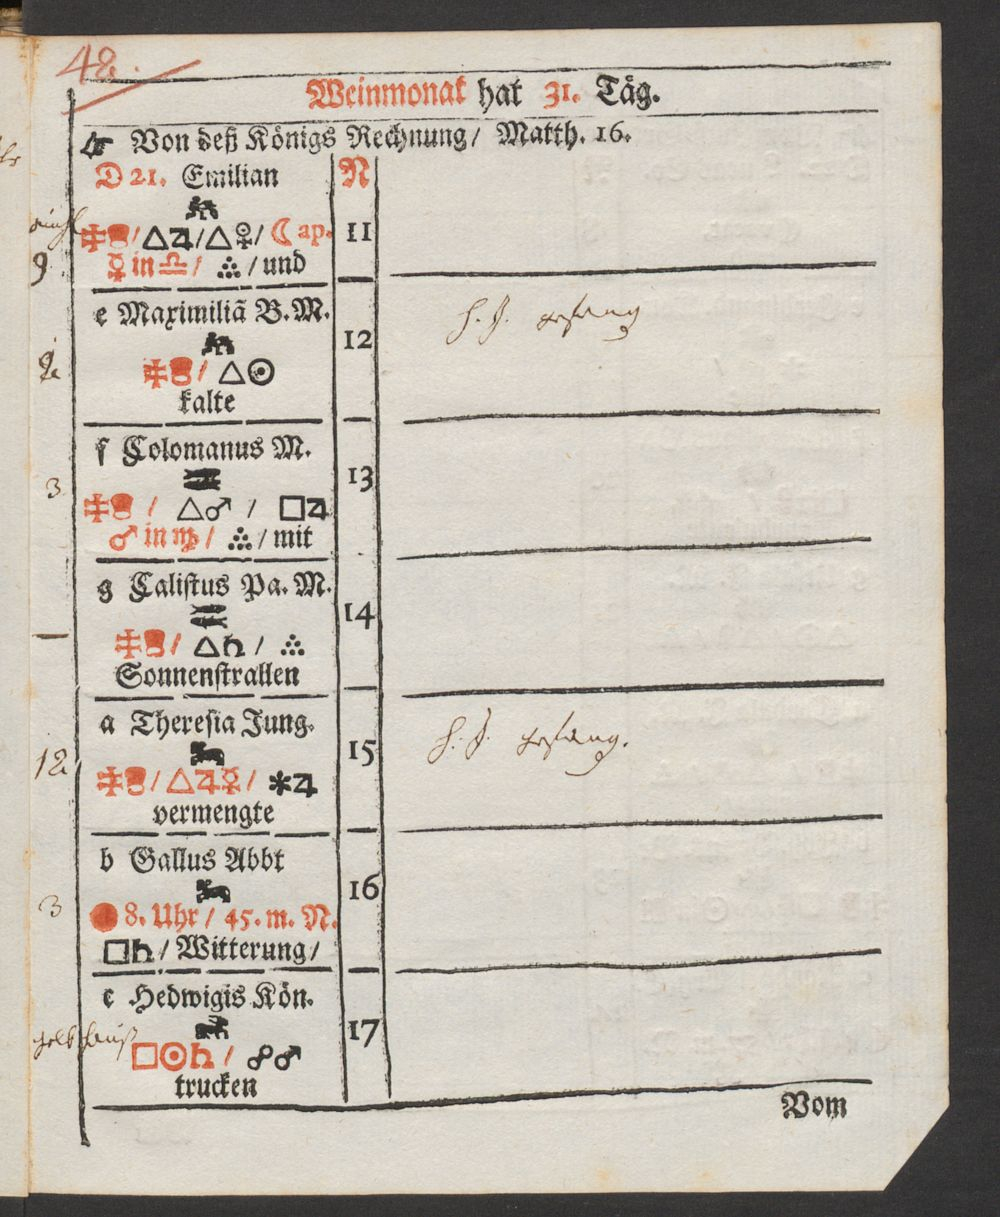 48.
Weinmonat hat 31. Täg.
☞ Von deß Königs Rechnung/ Matth. 16.
D 21. Emilian N
△♃/△♀/☾ap. 11
☿ in ♎/ ∴/und
9
e Maximiliã B.M.
12
△☉
kalte
f Colomanus M.
3 13
/ △♂ / □♃
♂ in ♍/ ∴/mit
g Calistus Pa. M.
14
/ △♄ / ∴
Sonnenstrallen
a Theresia Jung.
12 15
/△♃☿/ ✶♃
vermengte
b Gallus Abbt
3 16
● 8. Uhr/ 45. m. N.
□♄/Witterung/
c Hedwigis Kön.
17
□☉♄/ ☍♂
trucken
Vom